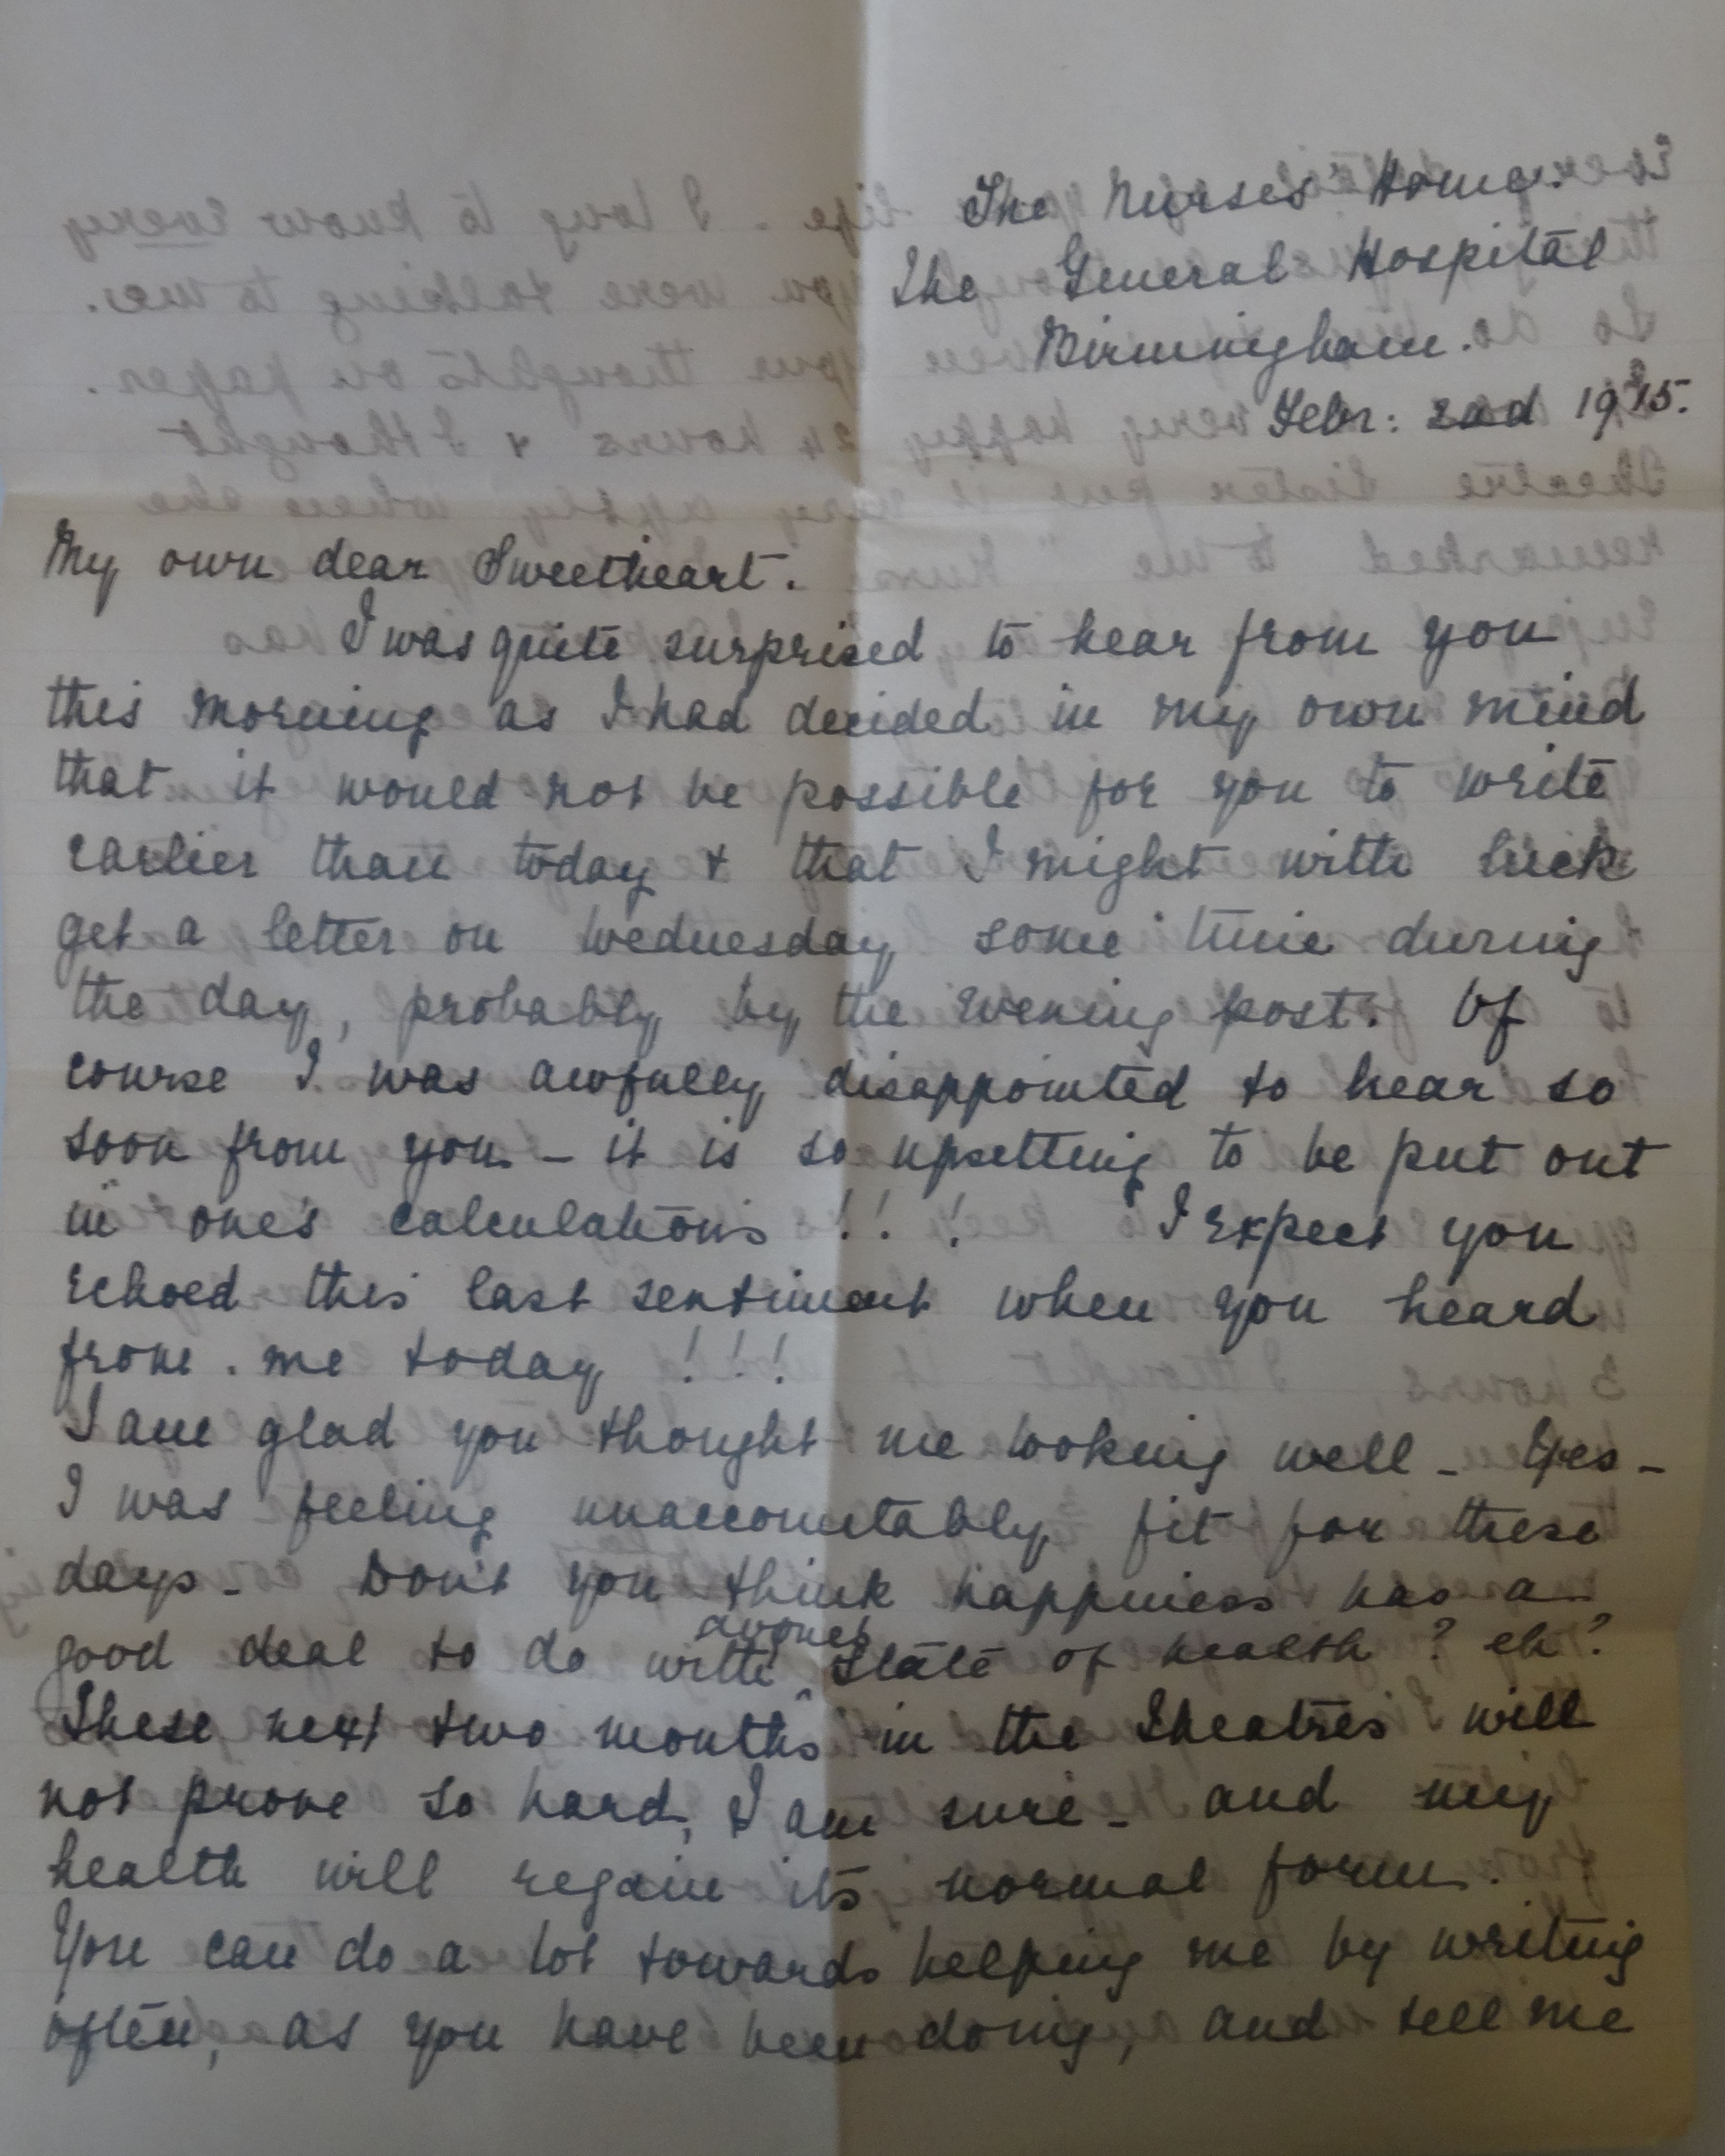 The Nurses' Home.
The General Hospital
Birmingham.
Febr: 2nd 1915.
My own dear Sweetheart.
I was quite surprised to hear from you
this morning as I had decided in my own mind
that it would not be possible for you to write
earlier than today & that I might with luck
get a letter on Wednesday some time during
the day, probably by the evening post. Of
course I was awfully disappointed to hear so
soon from you – it is so upsetting to be put out
in one's calculations !!! I expect you
echoed this last sentiment when you heard
from me today !!!
I am glad you thought me looking well – Yes –
I was feeling unaccountably fit for these
days – Don't you think happiness has a
good deal to do with ones state of health? eh?
These next two months in the Theatres will
not prove so hard, I am sure – and my
health will regain its normal form.
You can do a lot towards helping me by writing
often, as you have been doing, and tell me